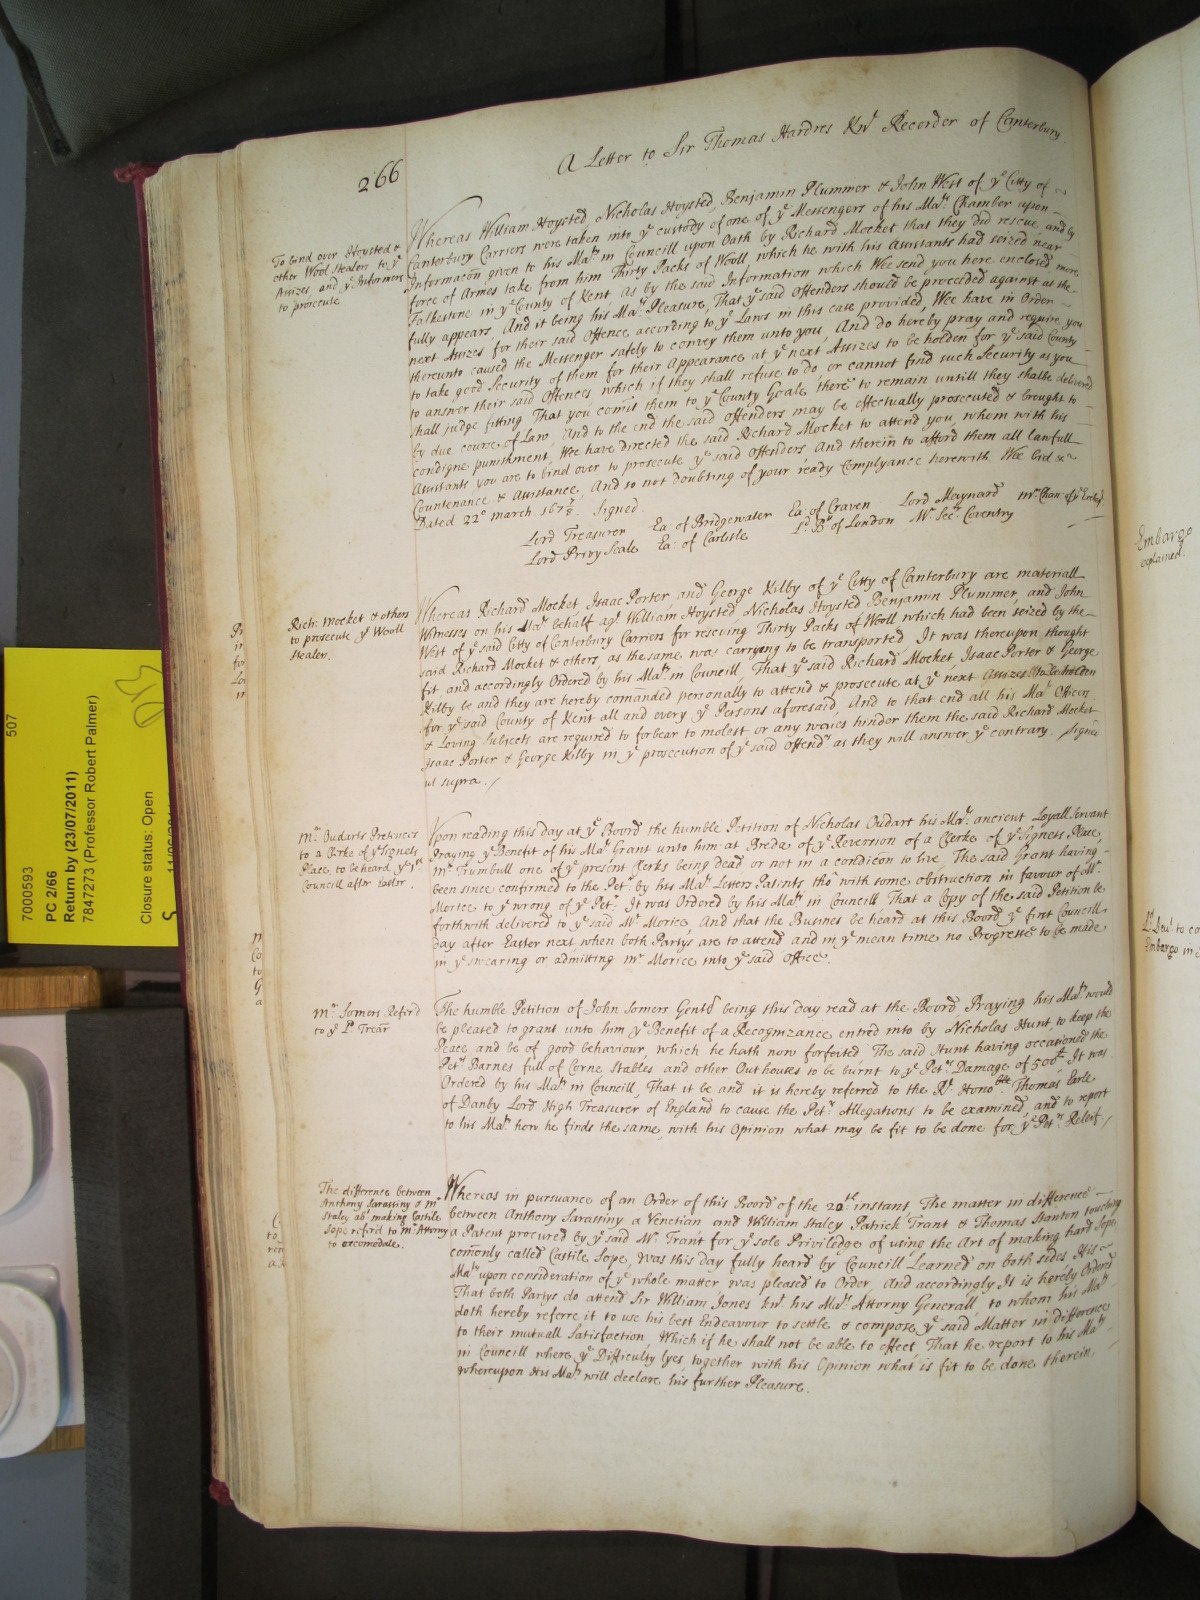 266
A Letter to Sir Thomas Hardres Knt Recorder of Canterbury
To bind over Hoysted &
other Wool Stealers to ye
Assizes, and ye Informers
to prosecute
Whereas William Hoysted, Nicholas Hoysted, Benjamin Plummer & John West of ye Citty of
Canterbury Carriers were taken into ye custody of one of ye Messengers of his Maty Chamber upon
Informacon given to his Maty in Councill upon Oath by Richard Mocket that they did rescue, and by
force of Armes take from him Thirty Packs of Wooll which he with his Assistants had seized near
Falkestone in ye County of Kent, as by the said Information which Wee send you here enclosed more
fully appears, And it being his Maty Pleasure, That ye said Offenders should be proceeded against at the
next Assizes for their said Offence, according to ye Laws in this case provided, Wee have in Order
thereunto caused the Messenger safely to convey them unto you, And do hereby pray and require you
to take good Security of them for their Appearance at ye next Assizes to be holden for ye said County
to answer their said Offences which if they shall refuse to do or cannot find such Security as you
shall judge fitting That you comit them to ye County Goale there to remain untill they shalbe delivered
by due course of Law, And to the end the said Offenders may be effectually prosecuted & brought to
condigne punishment, Wee have directed the said Richard Mocket to attend you, whom with his
Assistants you are to bind over to prosecute ye said Offenders, And therein to afford them all lawfull
Countenance & Assistance, And so not Doubting of your ready Complyance herewith. Wee bid &c
Dated 22o march. 167 7/8. Signed.
Lord Treasurer Ea: of Bridgewater Ea: of Craven Lord Maynard Mr Chan: of ye Excheqr
Lord Privy Seale Ea: of Carlisle Ld Bp of London Mr Secr Coventry
Rich: Mocket & others
to prosecute ye Wooll
Stealers.
Whereas Richard Mocket Isaac Porter and George Kilby of ye Citty of Canterbury are materiall
Witnesses on his Maty behalf agt William Hoysted, Nicholas Hoysted Benjamin Plummer, and John
West of ye said Citty of Canterbury Carriers for rescuing Thirty Packs of Wooll which had been seized by the
said Richard Mocket & others, as the same was carrying to be transported, It was thereupon thought
fit and accordingly Ordered by his Maty in Councill, That ye said Richard Mocket, Isaac Porter & George
Kilby be and they are hereby comanded personally to attend & prosecute at ye next Assizes to be holden
for ye said County of Kent all and every ye Persons aforesaid, And to that end all his Maty Officers
& Loving Subjects are required to forbear to molest or any wayes hinder them the said Richard Mocket
Isaac Porter & George Kilby in ye prosecution of ye said offendrs as they will answer ye contrary. Signed
ut supra.
Mr Oudarts Pretences
to a Clerke of ye Signets
Place, to be heard ye 1st
Councill after Easter.
Upon reading this day at ye Board the humble Petition of Nicholas Oudart his Maty ancient Loyall Servant
Praying ye Benefit of his Maty Grant unto him at Breda of ye Reversion of a Clerke of ye Signets Place,
Mr Trumbull one of ye present Clerks being dead or not in a condicon to live, The said Grant having
been since confirmed to the Petr by his Maty Letters Patents, tho' with some obstruction in favour of Mr
Morice to ye wrong of ye Petr. It was Ordered by his Maty in Councill That a Copy of the said Petition be
forthwith delivered to ye said Mr Morice, And that the Busines be heard at this Board ye first Councill
day after Easter next when both Partys are to attend and in ye mean time no Progresse to be made
in ye swearing or admitting Mr Morice into ye said Office.
Mr Somers Referd
to ye Ld Trear
The humble Petition of John Somers Gentn being this day read at the Board, Praying his Maty would
be pleased to grant unto him ye Benefit of a Recognizance entred into by Nicholas Hunt, to keep the
Peace and be of good behaviour, which he hath now forfeited, The said Hunt having occasioned the
Petrs Barnes full of Corne Stables and other Outhouses to be burnt to ye Petrs Damage of 500£ It was
Ordered by his Maty in Councill, That it be and it is hereby referred to the Rt Honoble Thomas Earle
of Danby Lord High Treasurer of England to cause the Petrs Allegations to be examined, and to report
to his Maty how he finds the same, with his Opinion what may be fit to be done for ye Petrs Releif.
The difference between
Anthony Sarattiny & Mr
Staley abt making Castile
Sope referd to Mr Attorny
to accomodate.
Whereas in pursuance of an Order of this Board of the 20th instant, The matter in difference
between Anthony Sarattiny a Venetian and William Staley Patrick Trant & Thomas Stanton touching
a Patent procured by ye said Mr Trant for ye sole Priviledge of using the Art of making hard Sope
comonly called Castile Sope, was this day fully heard by Councill Learned on both sides His
Maty upon consideration of ye whole matter was pleased to Order, And accordingly It is hereby Ordered
That both Partys do attend Sir William Jones Knt his Maty Attorny Generall, to whom his Maty
doth hereby referre it to use his best Endeavour to settle & compose ye said Matter in difference
to their mutuall Satisfaction, Which if he shall not be able to effect, That he report to his Maty
in Councill where ye Difficulty lyes, together with his Opinion what is fit to be done therein
whereupon His Maty will declare his further Pleasure.
Embargo
explained.
7000593 507
PC 2/66
Return by (23/07/2011)
7847273 (Professor Robert Palmer)
Closure status: Open